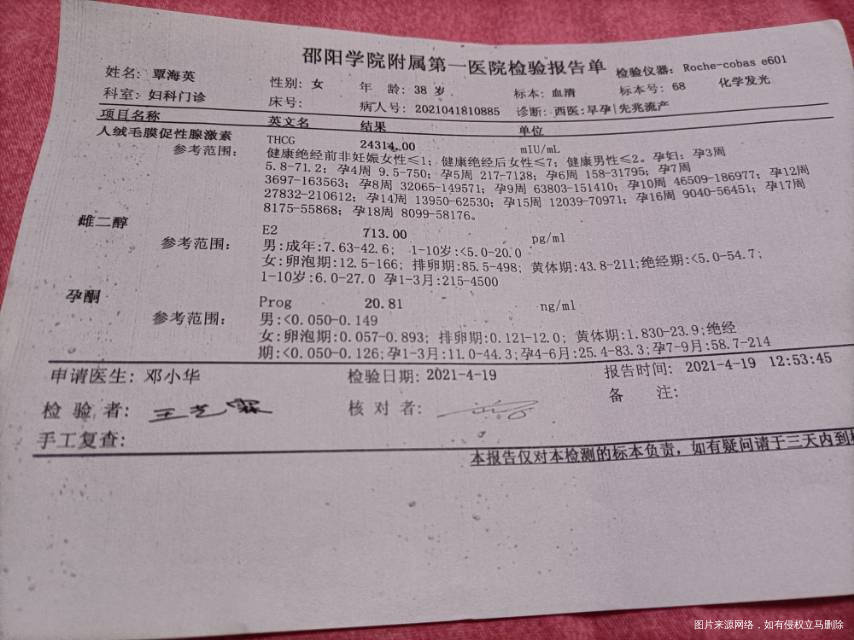 邵阳学院附属第一医院检验报告单
检验仪器: Roche-cobas e601
姓名: 覃海英 性别: 女 年 龄: 38 岁 标本: 血清 标本号: 68 化学发光
科室: 妇科门诊 床号: 病人号: 2021041810885 诊断: 西医:早孕|先兆流产
项目名称 英文名 结果 单位
人绒毛膜促性腺激素 THCG 24314.00 mIU/mL
参考范围: 健康绝经前非妊娠女性≤1; 健康绝经后女性≤7; 健康男性≤2。孕妇: 孕3周
5.8-71.2; 孕4周 9.5-750; 孕5周 217-7138; 孕6周 158-31795; 孕7周
3697-163563; 孕8周 32065-149571; 孕9周 63803-151410; 孕10周 46509-186977; 孕12周
27832-210612; 孕14周 13950-62530; 孕15周 12039-70971; 孕16周 9040-56451; 孕17周
8175-55868; 孕18周 8099-58176。
雌二醇 E2 713.00 pg/ml
参考范围: 男:成年:7.63-42.6; 1-10岁:<5.0-20.0
女:卵泡期:12.5-166; 排卵期:85.5-498; 黄体期:43.8-211;绝经期:<5.0-54.7;
1-10岁:6.0-27.0 孕1-3月:215-4500
孕酮 Prog 20.81 ng/ml
参考范围: 男:<0.050-0.149
女:卵泡期:0.057-0.893; 排卵期:0.121-12.0; 黄体期:1.830-23.9;绝经
期:<0.050-0.126;孕1-3月:11.0-44.3;孕4-6月:25.4-83.3;孕7-9月:58.7-214
申请医生: 邓小华 检验日期: 2021-4-19 报告时间: 2021-4-19 12:53:45
检 验 者: 王芝霖 核 对 者: 备 注:
手工复查:
本报告仅对本检测的标本负责, 如有疑问请于三天内到
图片来源网络，如有侵权立马删除